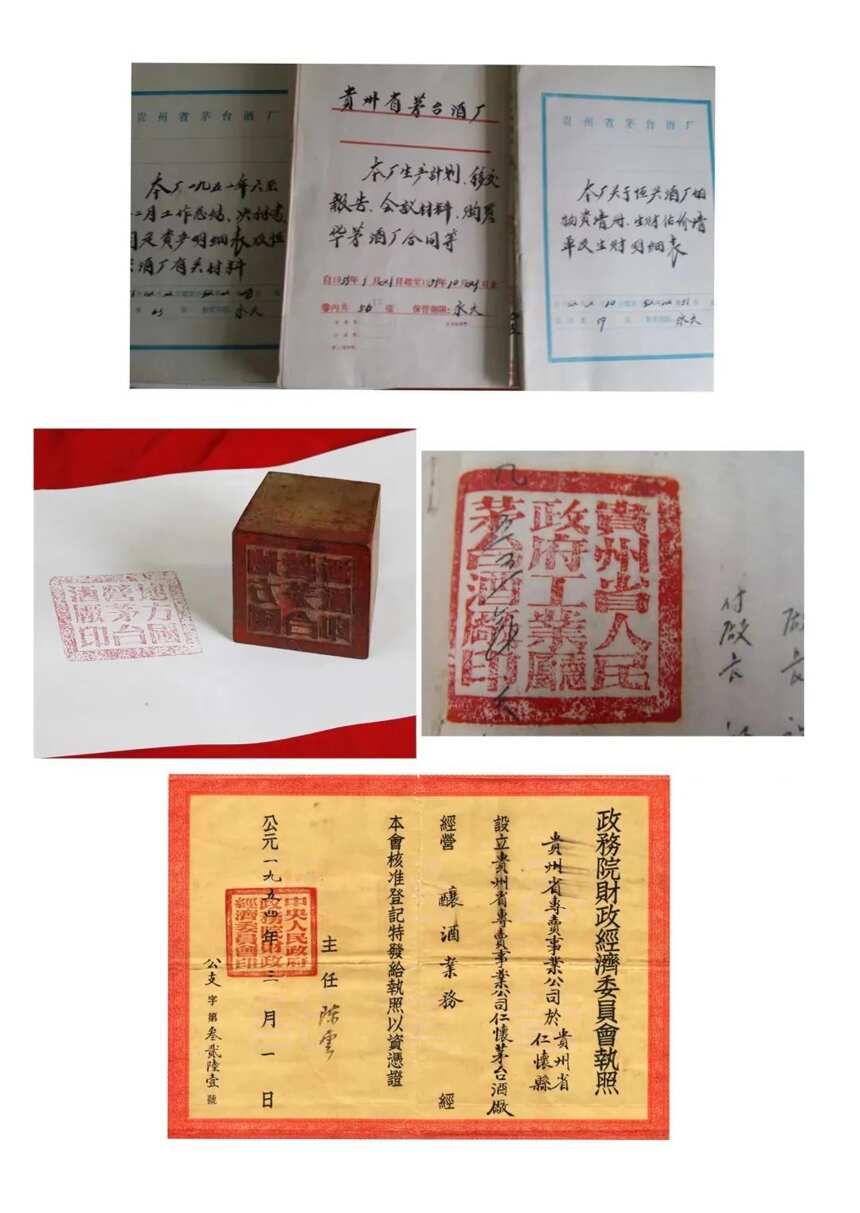 贵州省茅台酒厂
本厂一九五一年六至
二月工作总结、决算书
固定资产明细表及恒
酒厂有关材料
永久
贵州省茅台酒厂
本厂生产计划、移交
报告、会议材料、购买
华茅酒厂合同等
卷内共 56 张 保管期限：永久
贵州省茅台酒厂
本厂关于恒兴酒厂的
物资清册、生财估价清
平及生财明细表
19
永久
地方國
營茅台
酒廠印
貴州省人民
政府工業廳
茅台酒廠印
付廠长
廠长
政務院財政經濟委員會執照
貴州省專賣事業公司於貴州省仁懷縣
設立貴州省專賣事業公司仁懷茅台酒廠
經營 釀酒業務 經
本會核准登記特發給執照以資憑證
主任 陈雲
中央人民政府
政務院財政
經濟委員會印
公元一九五四年三月一日
公支字第叁貳陸壹號